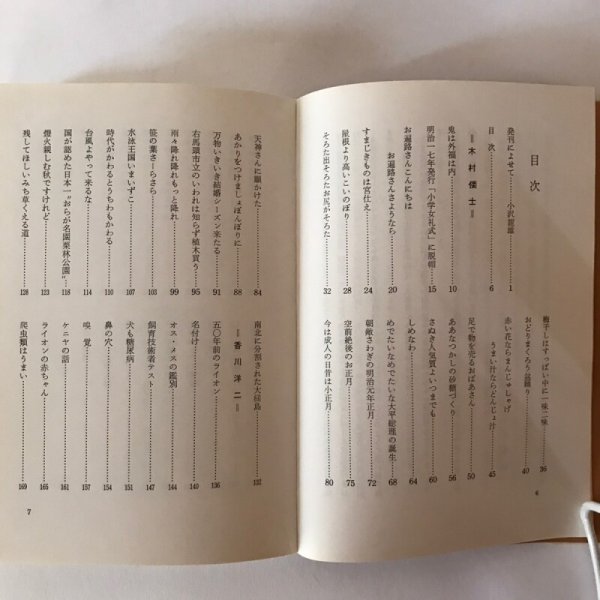 目次
発刊によせて……小沢龍雄……1
目次……6
＝木村倭士＝
鬼は外福は内……10
明治一七年発行「小学女礼式」に脱帽……15
お遍路さんこんにちは
お遍路さんさようなら……20
すまじきものは宮仕え……24
屋根より高いこいのぼり……28
そろた出そろたお尻がそろた……32
梅干しはすっぱい中に一味二味……36
おどりまくろう盆踊り……40
赤い花ならまんじゅしゃげ
うまい汁ならどんじょ汁……45
足で物を売るおばあさん……50
ああなつかしの砂糖づくり……56
さぬき人気質よいつまでも……60
しめなわ……64
めでたいなめでたいな大平総理の誕生……68
朝敵さわぎの明治元年正月……72
空前絶後のお正月……75
今は成人の日昔は小正月……80
6
天神さんに願かけた……84
あかりをつけましょぼんぼりに……88
万物いきいき結婚シーズン来たる……91
右馬頭市立のいわれは知らず植木買う……95
雨々降れ降れもっと降れ……99
笹の葉さーらさら……103
水泳王国いまいずこ……107
時代がかわるとうちわもかわる……110
台風よやって来るな……114
国が認めた日本一“おらが名園栗林公園”……118
燈火親しむ秋ですけれど……123
残してほしいみち草くえる道……128
南北に分割された大槌島……132
＝香川洋二＝
五〇年前のライオン……136
名付け……140
オス・メスの鑑別……144
飼育技術者テスト……147
犬も糖尿病……151
鼻の穴……154
嗅覚……157
ケニヤの話……161
ライオンの赤ちゃん……165
爬虫類はうまい……169
7